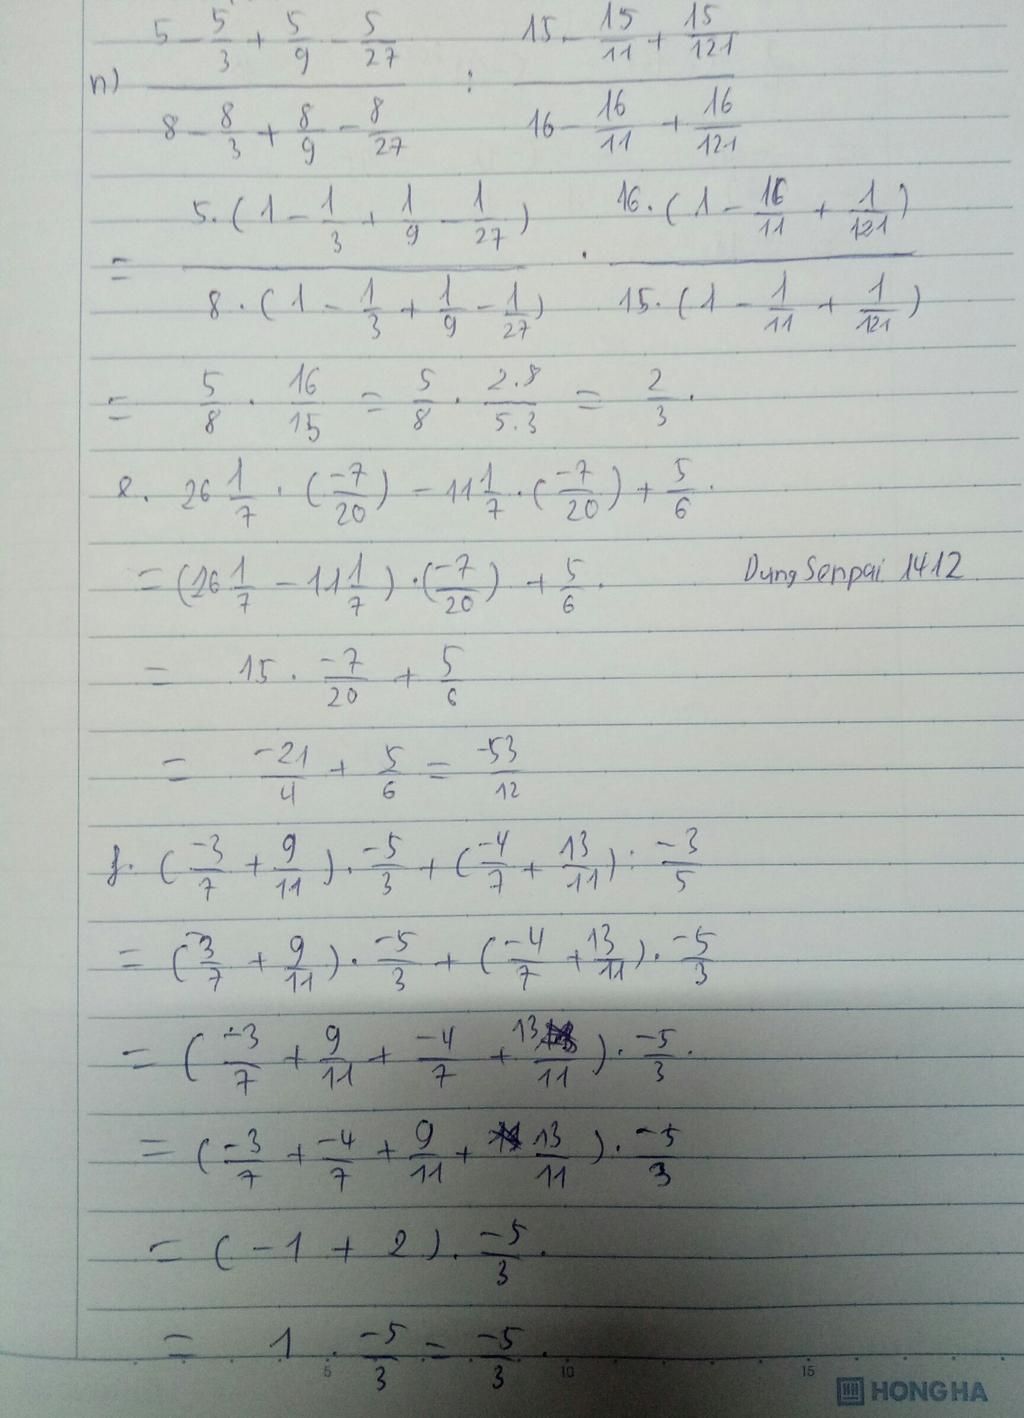 n) (5 - 5/3 + 5/9 - 5/27)/(8 - 8/3 + 8/9 - 8/27) : (15 - 15/11 + 15/121)/(16 - 16/11 + 16/121)
= (5.(1 - 1/3 + 1/9 - 1/27))/(8.(1 - 1/3 + 1/9 - 1/27)) . (16.(1 - 16/11 + 1/121))/(15.(1 - 1/11 + 1/121))
= 5/8 . 16/15 = 5/8 . 2.8/5.3 = 2/3 .
e. 26 1/7 . (-7/20) - 11 1/7 . (-7/20) + 5/6 .
= (26 1/7 - 11 1/7) . (-7/20) + 5/6 .
Dung Senpai 1412
= 15 . -7/20 + 5/6
= -21/4 + 5/6 = -53/12
f. (-3/7 + 9/11) . -5/3 + (-4/7 + 13/11) : -3/5
= (-3/7 + 9/11) . -5/3 + (-4/7 + 13/11) . -5/3
= (-3/7 + 9/11 + -4/7 + 13/11) . -5/3 .
= (-3/7 + -4/7 + 9/11 + 13/11) . -5/3
= (-1 + 2) . -5/3 .
= 1 . -5/3 = -5/3 .
5 10 15
HONG HA